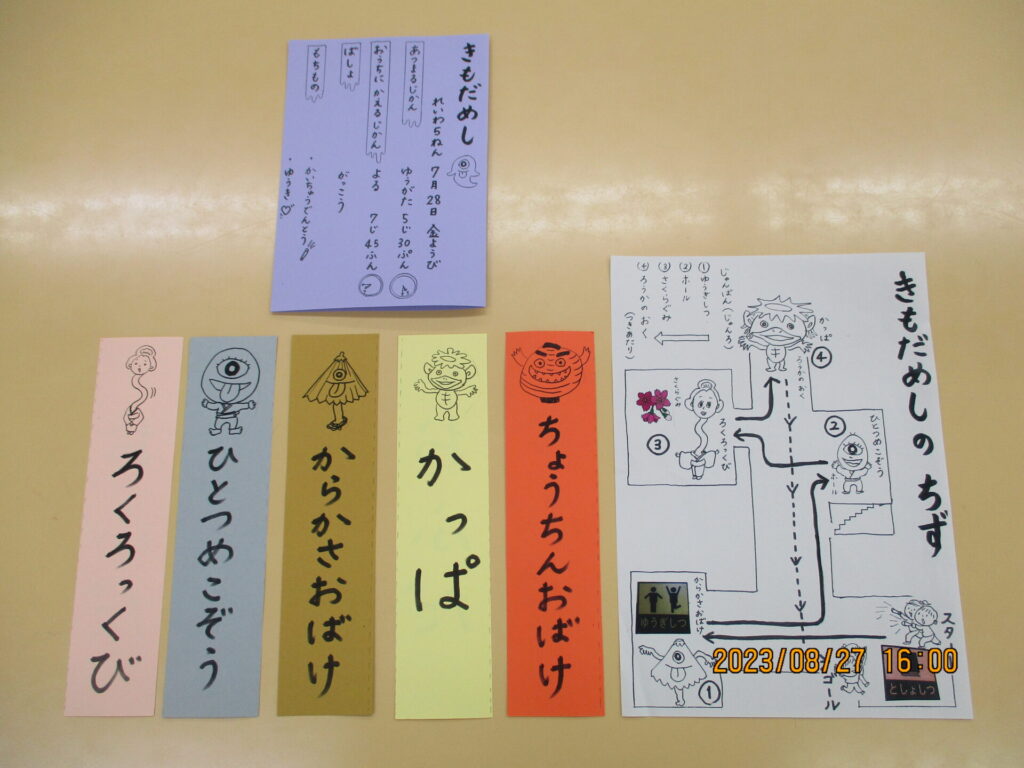 きもだめし
れいわ5ねん 7月28日 金ようび
あつまるじかん
ゆうがた 5じ30ぷん
おうちに かえるじかん
よる 7じ45ふん
ばしょ
がっこう
もちもの
・かいちゅうでんとう
・ゆうき♡
ろくろっくび
ひとつめこぞう
からかさおばけ
かっぱ
ちょうちんおばけ
きもだめしの ちず
じゅんばん(じゅんろ)
①ゆうぎしつ
②ホール
③さくらぐみ
④ろうかの おく
(つきあたり)
かっぱ
④
ろうかの おく
さくらぐみ
ろくろっくび
③
②
ひとつめこぞう
ホール
からかさおばけ
ゆうぎしつ
①
スタ
ゴール
としょしつ
2023/08/27 16:00